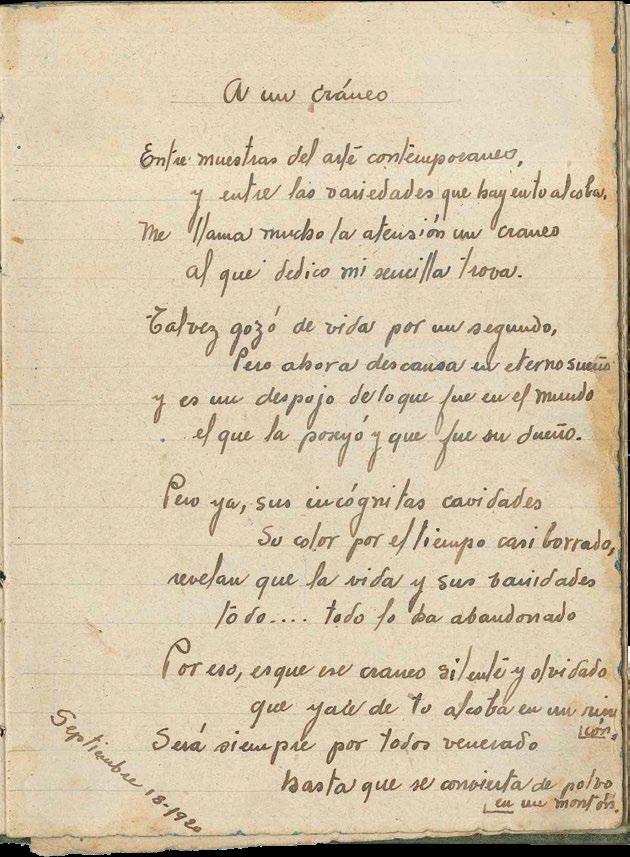 A un cráneo
Entre muestras del arte contemporaneo,
y entre las variedades que hay en tu alcoba.
Me llama mucho la atensión un craneo
al que dedico mi sencilla trova.
Talvez gozó de vida por un segundo,
Pero ahora descansa en eterno sueño
y es un despojo de lo que fue en el mundo
el que la poseyó y que fue su dueño.
Pero ya, sus incógnitas cavidades
Su color por el tiempo casi borrado,
revelan que la vida y sus vanidades
todo.... todo lo ha abandonado
Por eso, es que ese craneo silente y olvidado
que yace de tu alcoba en un rin
cón.
Será siempre por todos venerado
hasta que se convierta de polvo
en un montón.
Septiembre 18-1920